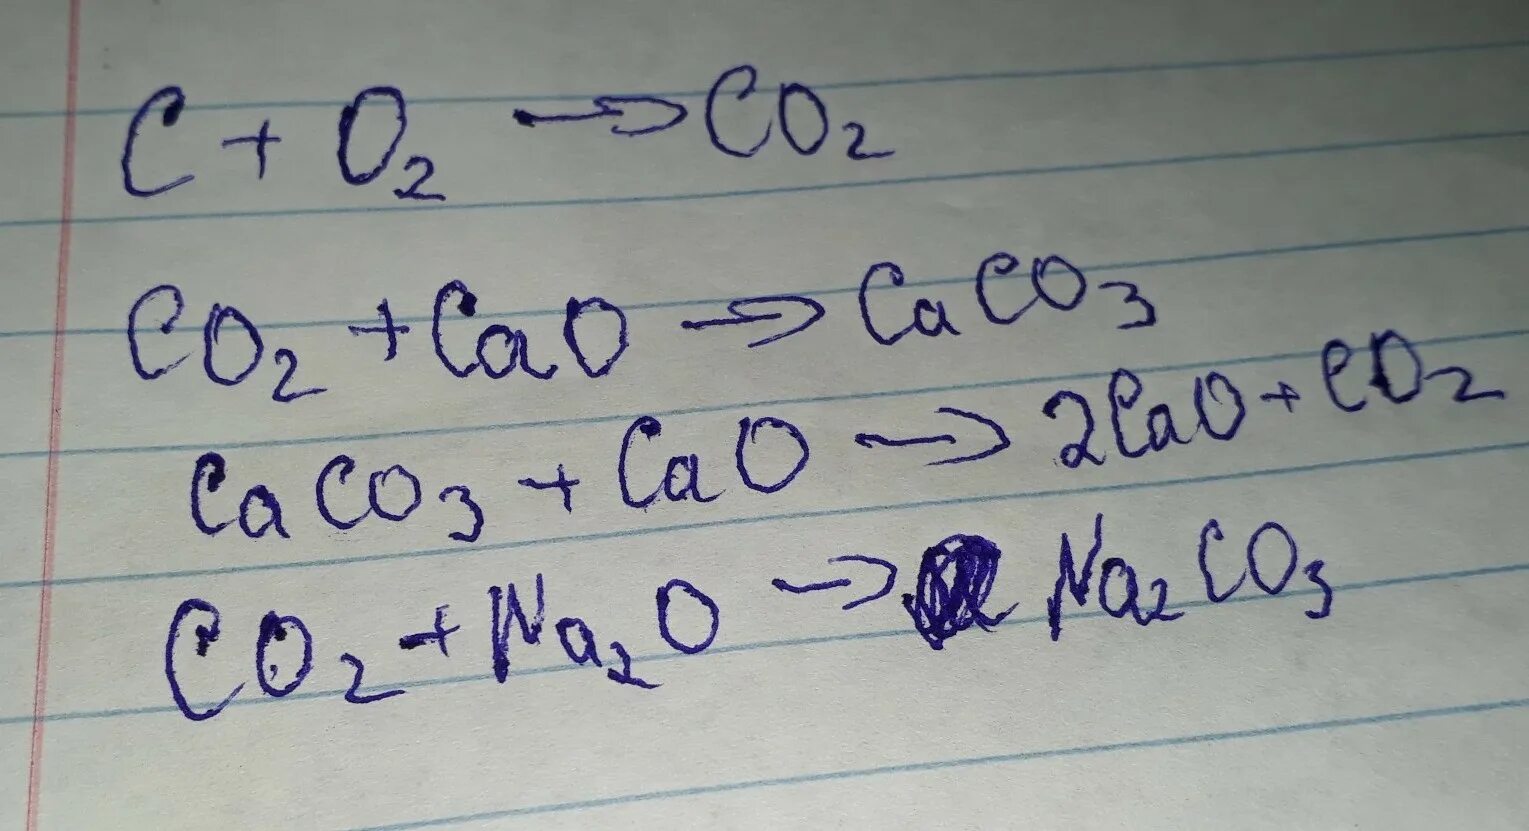 C + O₂ → CO₂
CO₂ + CaO → CaCO₃
CaCO₃ + CaO → 2CaO + CO₂
CO₂ + Na₂O → Na₂CO₃